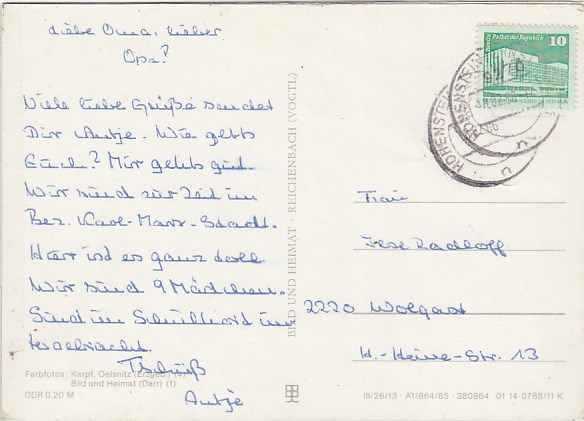 Liebe Oma, lieber
Opa!
Viele liebe Grüße sendet
Dir Antje. Wie gehts
Euch? Mir gehts gut.
Wir sind zur Zeit im
Bez. Karl-Marx-Stadt.
Hier ist es ganz toll.
Wir sind 9 Mädchen.
Sind im Schulhort im
Tschüß
Antje
Farbfotos: Karpf, Oelsnitz (Erzgeb.) (4)
Bild und Heimat (Darr) (1)
DDR 0,20 M
BILD UND HEIMAT · REICHENBACH (VOGTL)
Palast der Republik 10
HOHENSTEIN
Frau
Ilse Radloff
2220 Wolgast
H.-Heine-Str. 13
III/26/13 · A1/864/85 · 380864 01 14 0788/11 K